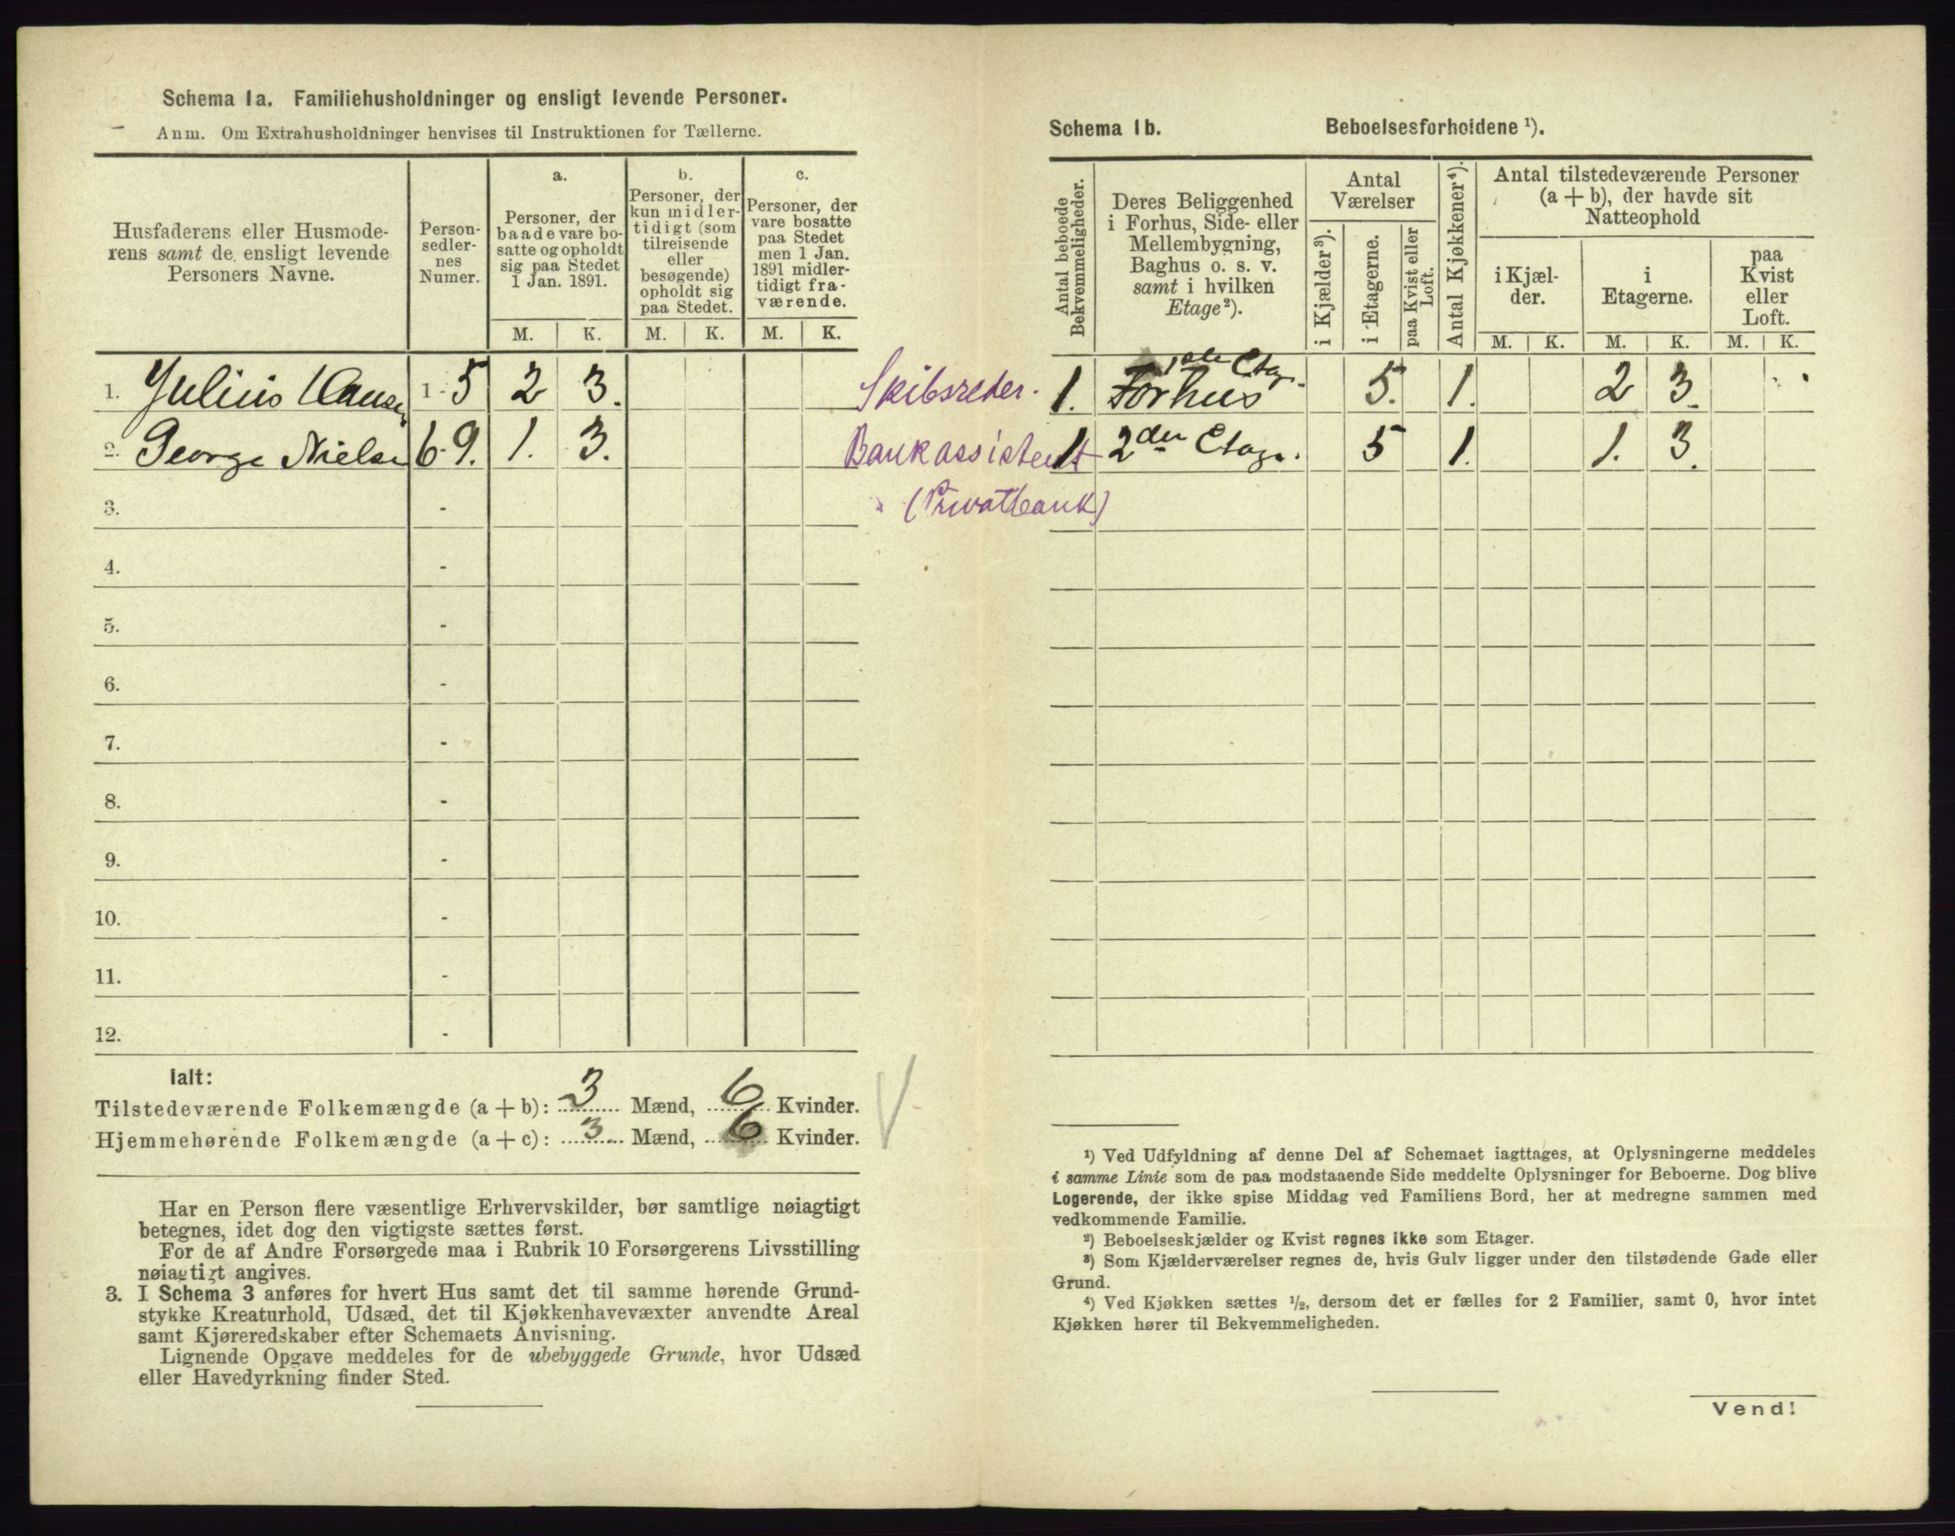 Schema 1a. Familiehusholdninger og ensligt levende Personer.
Anm. Om Extrahusholdninger henvises til Instruktionen for Tællerne.
Husfaderens eller Husmoderens samt de ensligt levende Personers Navne.
Person-sedler-nes Numer.
a.
Personer, der baade vare bosatte og opholdt sig paa Stedet 1 Jan. 1891.
b.
Personer, der kun midler-tidigt (som tilreisende eller besøgende) opholdt sig paa Stedet.
c.
Personer, der vare bosatte paa Stedet men 1 Jan. 1891 midler-tidigt fra-værende.
M. K. M. K. M. K.
1. Julius Hansen 1-5 2 3. Skibsreder.
2. George Nielsen 6-9. 1. 3. Bankassistent
(Privatbank)
3. -
4. -
5. -
6. -
7. -
8. -
9. -
10. -
11. -
12. -
Ialt:
Tilstedeværende Folkemængde (a+b): 3 Mænd, 6 Kvinder.
Hjemmehørende Folkemængde (a+c): 3 Mænd, 6 Kvinder.
Har en Person flere væsentlige Erhvervskilder, bør samtlige nøiagtigt
betegnes, idet dog den vigtigste sættes først.
For de af Andre Forsørgede maa i Rubrik 10 Forsørgerens Livsstilling
nøiagtigt angives.
3. I Schema 3 anføres for hvert Hus samt det til samme hørende Grund-
stykke Kreaturhold, Udsæd, det til Kjøkkenhavevæxter anvendte Areal
samt Kjøreredskaber efter Schemaets Anvisning.
Lignende Opgave meddeles for de ubebyggede Grunde, hvor Udsæd
eller Havedyrkning finder Sted.
Schema 1b. Beboelsesforholdene ¹).
Antal beboede Bekvemmeligheder.
Deres Beliggenhed i Forhus, Side- eller Mellembygning, Baghus o. s. v. samt i hvilken Etage²).
Antal Værelser
i Kjælder³).
i Etagerne.
paa Kvist eller Loft.
Antal Kjøkkener⁴).
Antal tilstedeværende Personer (a+b), der havde sit Natteophold
i Kjæl-der.
i Etagerne.
paa Kvist eller Loft.
M. K. M. K. M. K.
1. Forhus 1ste Etage. 5. 1. 2 3.
1 2den Etage. 5 1. 1. 3.
¹) Ved Udfyldning af denne Del af Schemaet iagttages, at Oplysningerne meddeles
i samme Linie som de paa modstaaende Side meddelte Oplysninger for Beboerne. Dog blive
Logerende, der ikke spise Middag ved Familiens Bord, her at medregne sammen med
vedkommende Familie.
²) Beboelseskjælder og Kvist regnes ikke som Etager.
³) Som Kjælderværelser regnes de, hvis Gulv ligger under den tilstødende Gade eller
Grund.
⁴) Ved Kjøkken sættes ½, dersom det er fælles for 2 Familier, samt 0, hvor intet
Kjøkken hører til Bekvemmeligheden.
Vend!